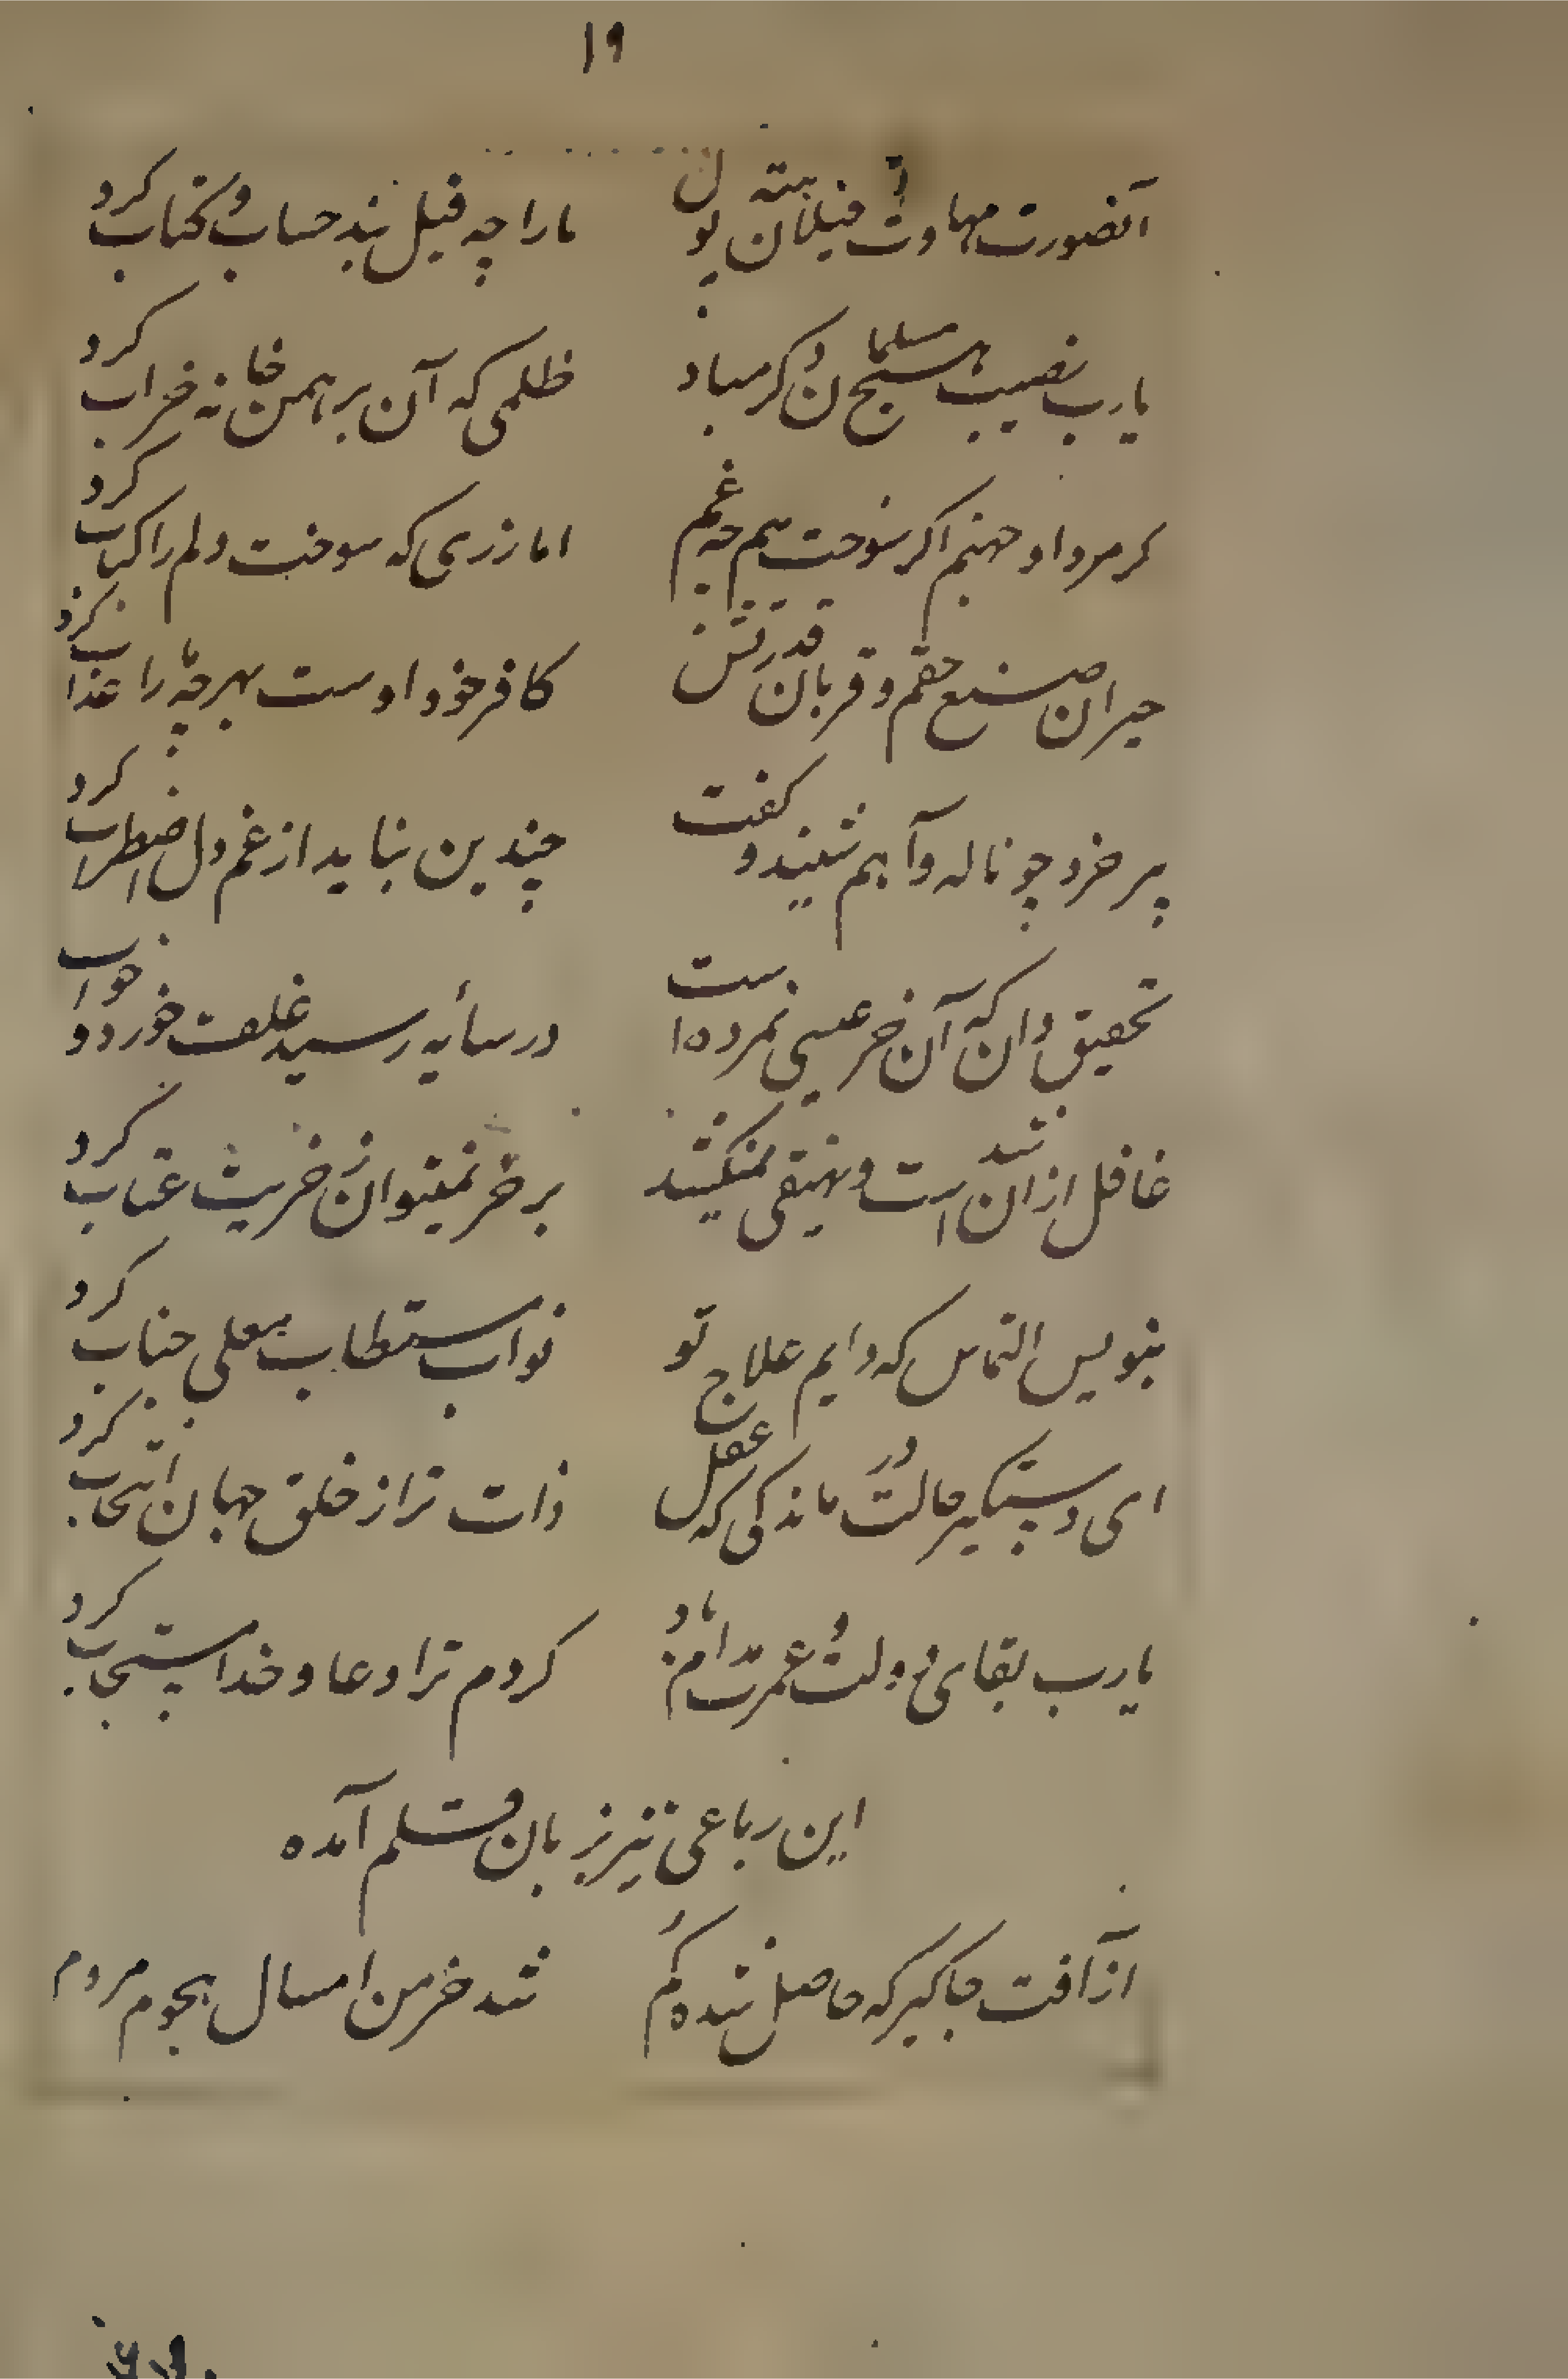 ۱۹
آنصورت مهاوت فیلان بسته پول ما را چه فیل بند حساب و کتاب کرد
یارب نصیب هیچ مسلمان دگر مباد ظلمی که آن برهمن خانه خراب کرد
کر مرد او جهنم اکر سوخت هم چه غم اما زری که سوخت دلم را کباب کرد
حیران صنع حقم و قربان قدرتش کافر خود اوست بهر چه ما را عذاب کرد
پیر خرد چو ناله و آهم شنید و کفت چندین نباید از غم دل اضطراب کرد
تحقیق دان که آن خر عیسی نمرده است در سایه رسید علف خورد و خواب کرد
غافل از ان شد است و نهیقی نمیکشد بر خر نمیتوان ز خریت عتاب کرد
بنویس التماس که دایم علاج تو نواب مستطاب معلی جناب کرد
ای دستکیر حالت درماندکی که عقل ذات ترا از خلق جهان انتخاب کرد
یارب بقای دولت و عمرت مدام باد کردم ترا دعا و خدا مستجاب کرد
این رباعی نیز بزبان قلم آمده
از آفت جاکیر که حاصل شده کم شد خرمن امسال هجوم مردم